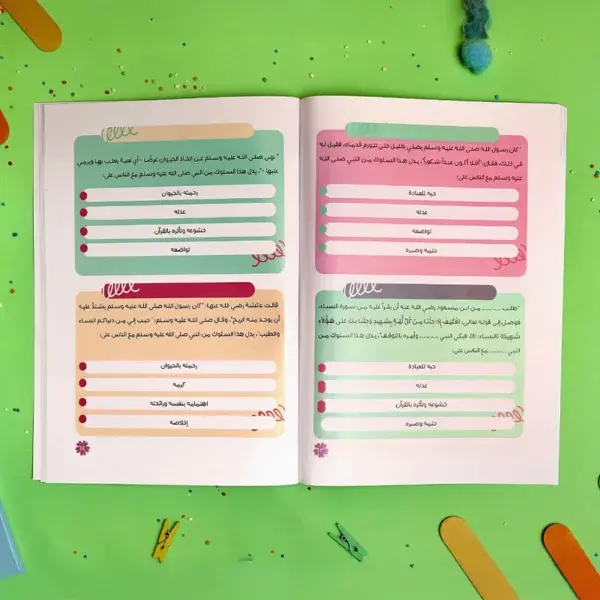 "كان رسول الله صلى الله عليه وسلم يصلي بالليل حتى تتورم قدماه، فقيل له
في ذلك، فقال: "أفلا أكون عبداً شكوراً"، يدل هذا السلوك من النبي صلى الله
عليه وسلم مع الناس على:
حبه للعبادة
عدله
تواضعه
حلمه وصبره
"طلب ........ من ابن مسعود رضي الله عنه أن يقرأ عليه من سورة النساء،
فوصل إلى قوله تعالى: ﴿فَكَيْفَ إِذَا جِئْنَا مِنْ كُلِّ أُمَّةٍ بِشَهِيدٍ وَجِئْنَا بِكَ عَلَى هَؤُلَاءِ
شَهِيدًا﴾ (النساء: 41)، فبكى النبي ........ وأمره بالتوقف"، يدل هذا السلوك من
النبي ........ مع الناس على:
حبه للعبادة
عدله
خشوعه وتأثره بالقرآن
حلمه وصبره
" نهى صلى الله عليه وسلم عن اتخاذ الحيوان غرضًا - أي لعبة يلعب بها ويرمي
عليها -"، يدل هذا السلوك من النبي صلى الله عليه وسلم مع الناس على:
رحمته بالحيوان
عدله
خشوعه وتأثره بالقرآن
تواضعه
قالت عائشة رضي الله عنها: "كان رسول الله صلى الله عليه وسلم يشتدّ عليه
أن يوجد منه الريح"، وقال صلى الله عليه وسلم: "حبب إلي من دنياكم النساء
والطيب"، يدل هذا السلوك من النبي صلى الله عليه وسلم مع الناس على:
رحمته بالحيوان
كرمه
اهتمامه بنفسه ورائحته
إخلاصه